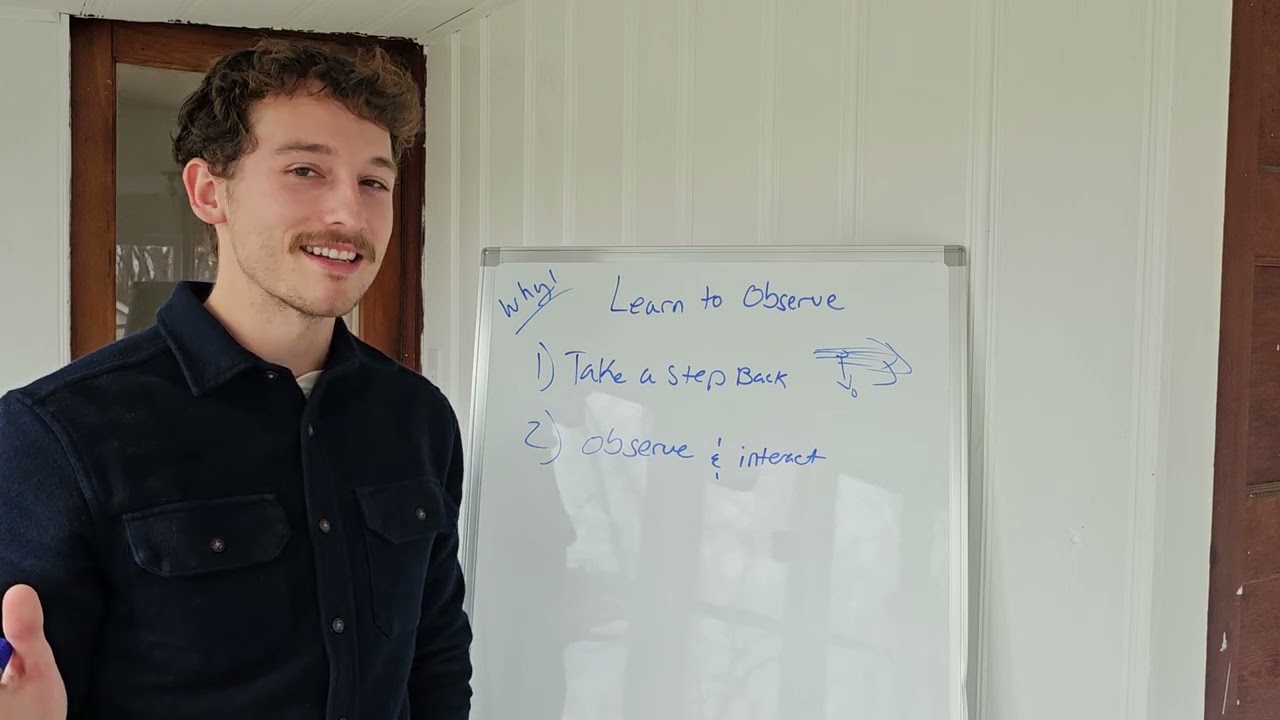 Why!
Learn to Observe
1) Take a Step Back
2) Observe & interact